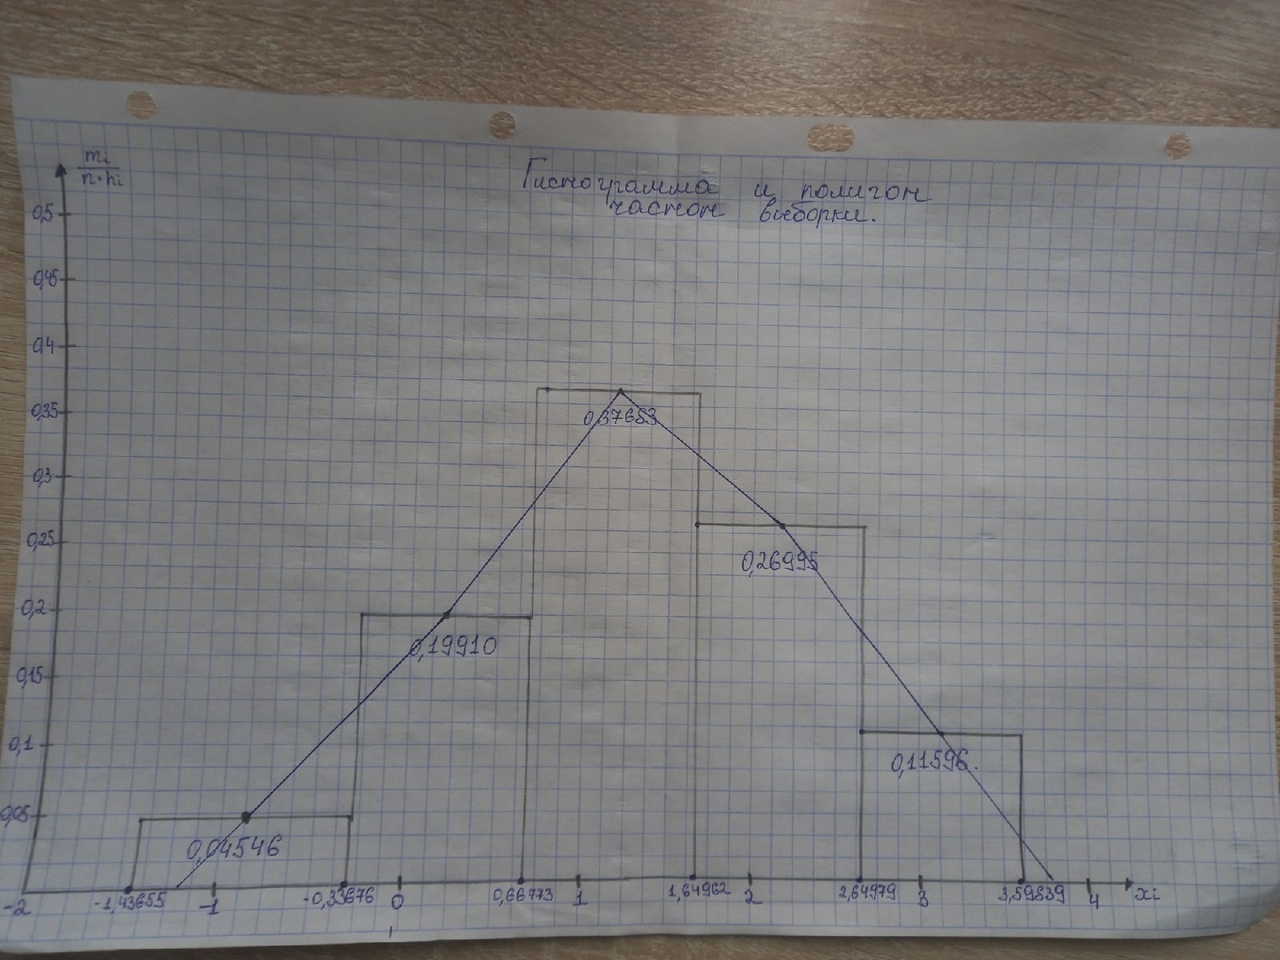 mi
n·hi
Гистограмма и полигон
частот выборки.
0,5
0,45
0,4
0,35
0,3
0,25
0,2
0,15
0,1
0,05
0,37683
0,26995
0,19910
0,11596.
0,04546
-2 -1,43655 -1 -0,33676 0 0,66773 1 1,64962 2 2,64979 3 3,59839 4 xi